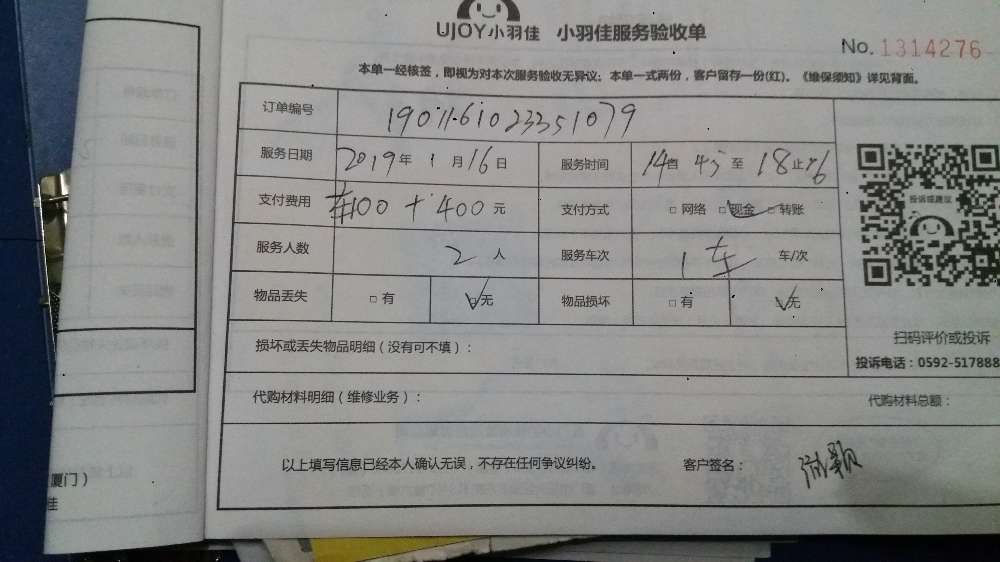 UJOY小羽佳 小羽佳服务验收单
No. 1314276
本单一经核签，即视为对本次服务验收无异议；本单一式两份，客户留存一份(红)。《维保须知》详见背面。
订单编号 19011610233351079
服务日期 2019年1月16日 服务时间 14 至 18止
支付费用 400元 支付方式 □网络 □现金 □转账
服务人数 2人 服务车次 1车 车/次
物品丢失 □有 □无 物品损坏 □有 无
投诉或建议
损坏或丢失物品明细（没有可不填）：
扫码评价或投诉
投诉电话：0592-517888
代购材料明细（维修业务）：
代购材料总额：
以上填写信息已经本人确认无误，不存在任何争议纠纷。 客户签名：
厦门）
佳